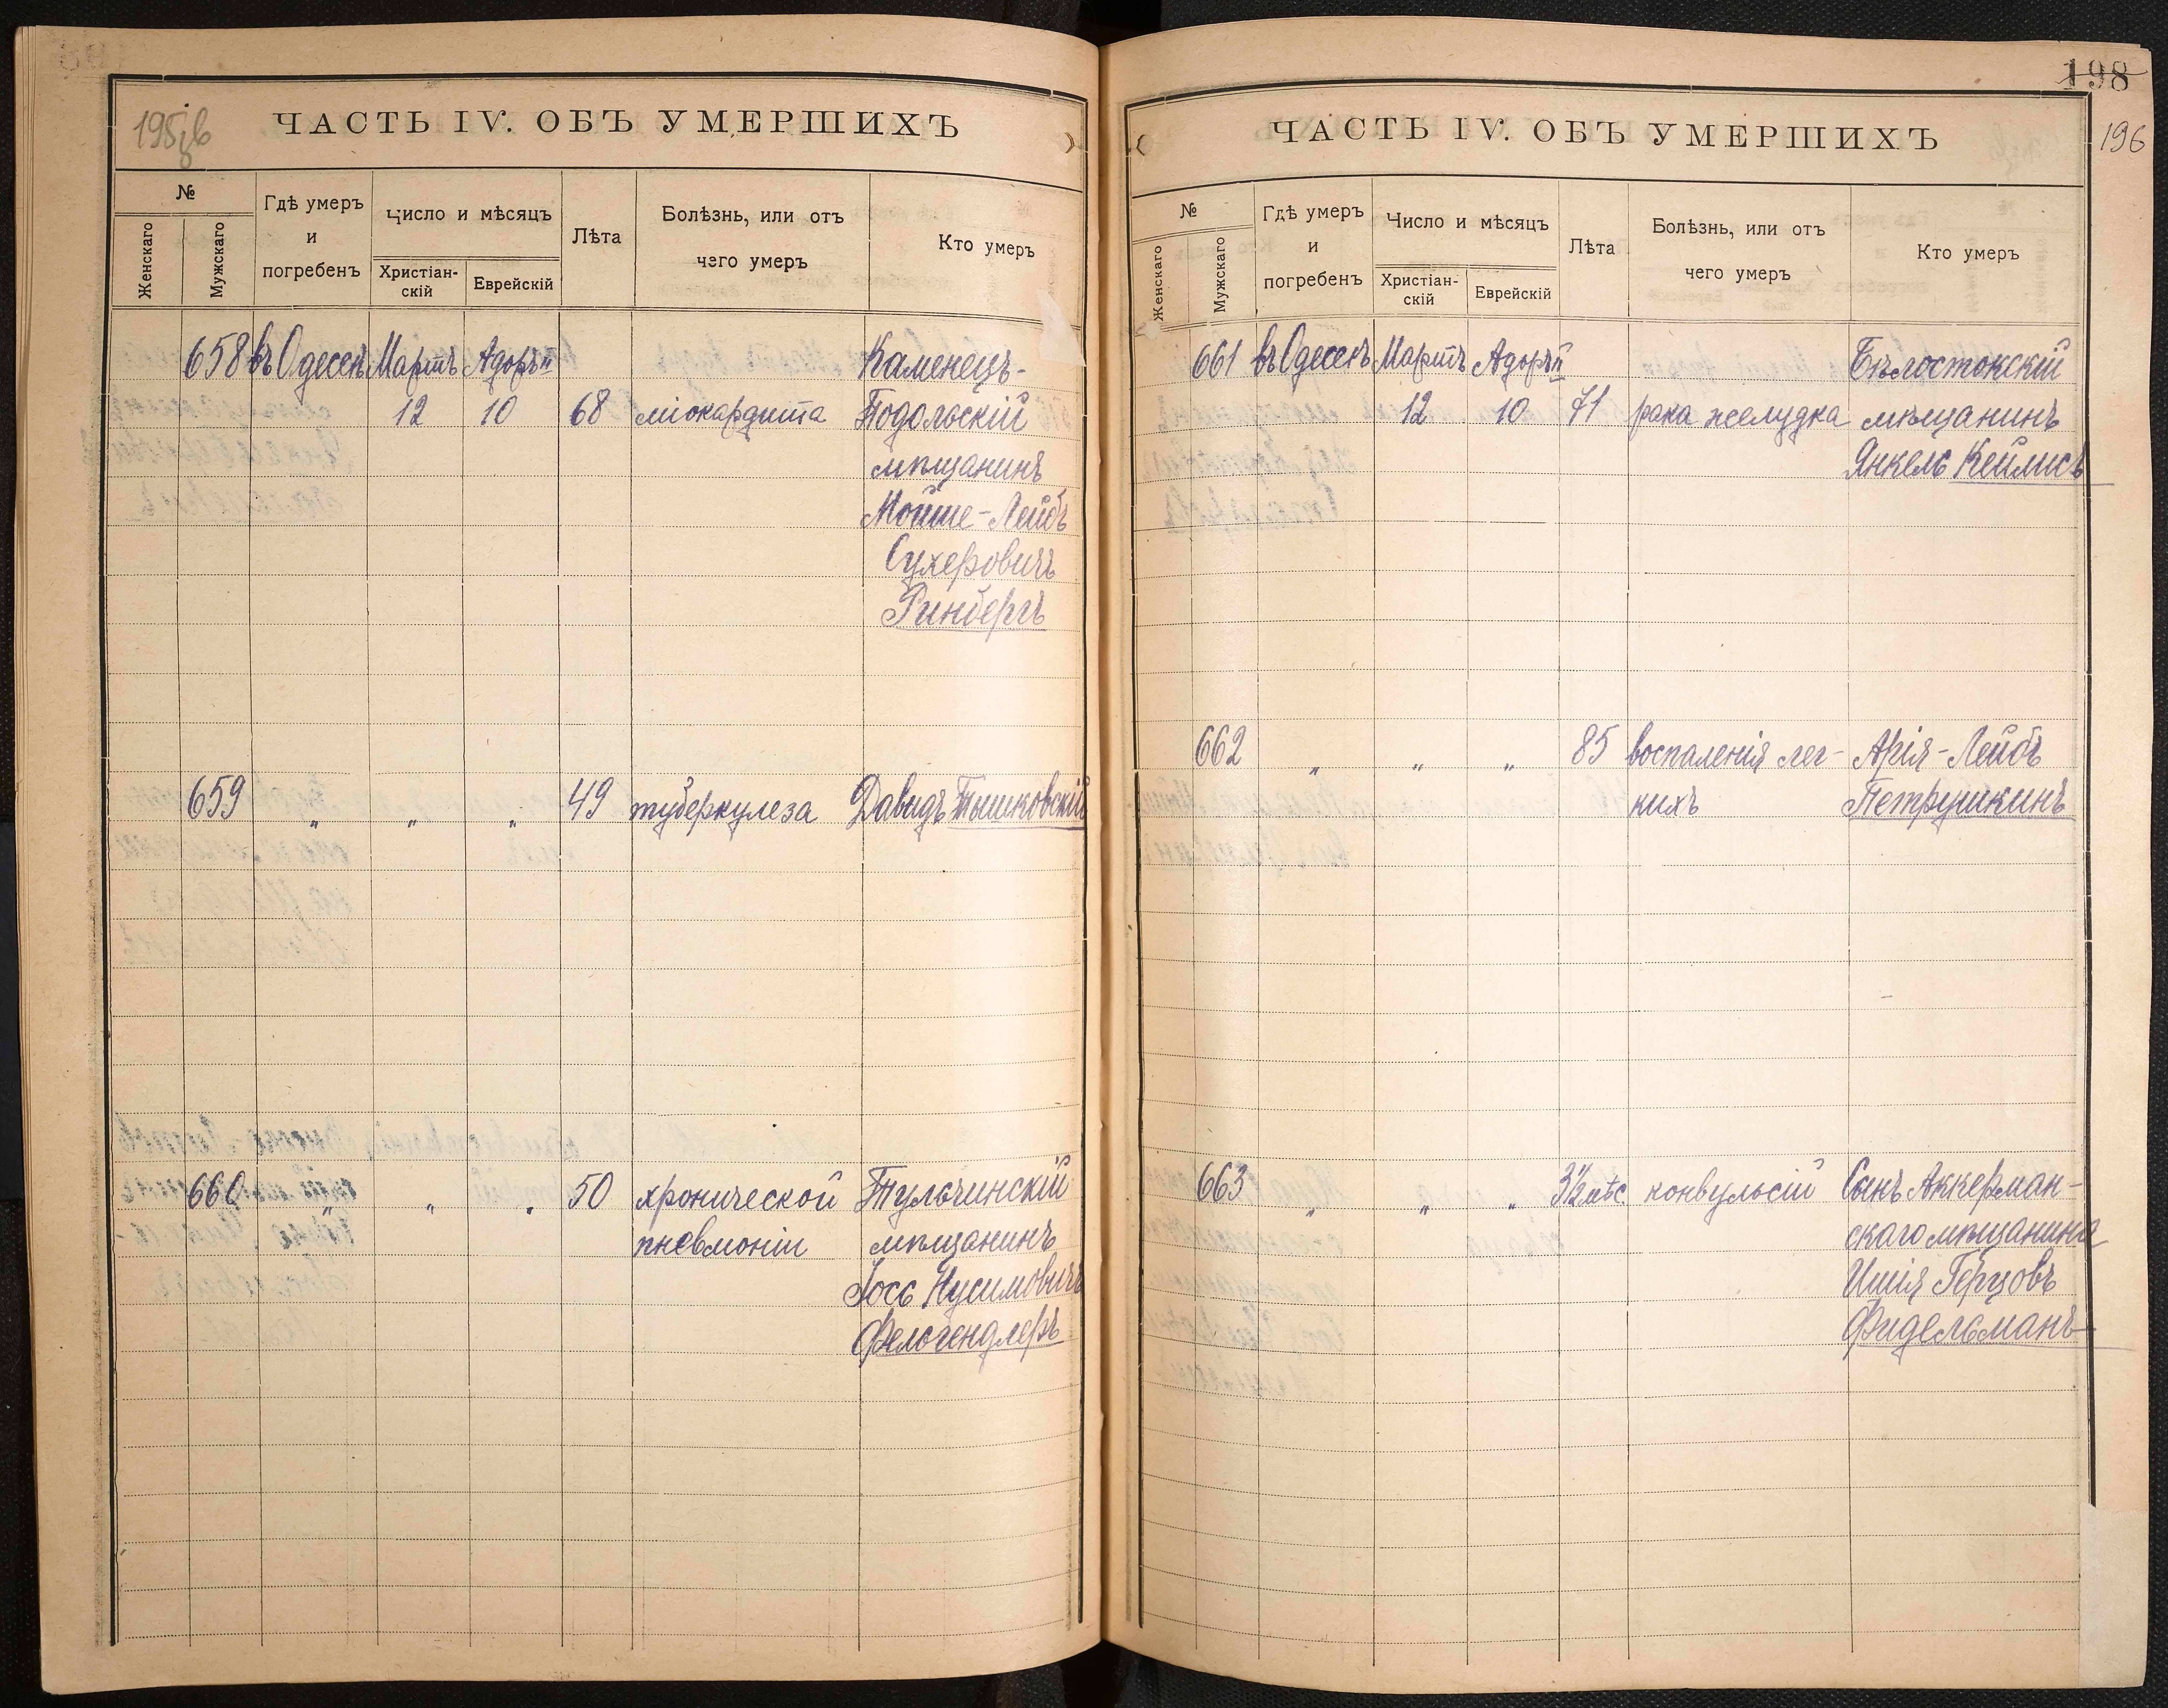 195 зв
ЧАСТЬ IV. ОБЪ УМЕРШИХЪ
№
Женскаго
Мужскаго
Гдѣ умеръ
и
погребенъ
Число и мѣсяцъ
Христіан-
скій
Еврейскій
Лѣта
Болѣзнь, или отъ
чего умеръ
Кто умеръ
658 въ Одессѣ Мартъ Адоръ II Каменецъ-
12 10 68 міокардита Подольскій
мѣщанинъ
Мойше-Лейбъ
Сухеровичъ
Ринбергъ
659 „ „ „ 49 туберкулеза Давидъ Тышковскій
660 „ „ „ 50 хронической Тульчинскій
пневмоніи мѣщанинъ
Іось Нусимовичъ
Фельгендлеръ
198
196
ЧАСТЬ IV. ОБЪ УМЕРШИХЪ
№
Женскаго
Мужскаго
Гдѣ умеръ
и
погребенъ
Число и мѣсяцъ
Христіан-
скій
Еврейскій
Лѣта
Болѣзнь, или отъ
чего умеръ
Кто умеръ
661 въ Одессѣ Мартъ Адоръ II Бѣлостокскій
12 10 71 рака желудка мѣщанинъ
Янкель Кейлисъ
662 „ „ „ 85 воспаленія лег- Арія-Лейбъ
кихъ Петрушкинъ
663 „ „ „ 3½ мѣс. конвульсій Сынъ Аккерман-
скаго мѣщанина
Ишія Герцовъ
Фидельманъ